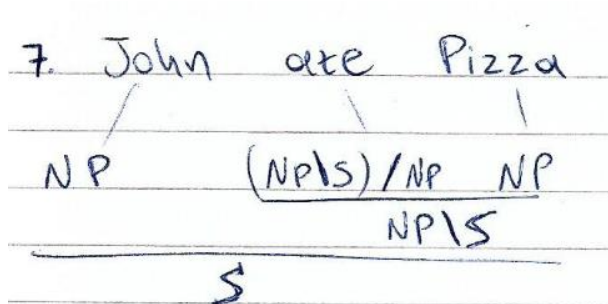 7. John ate Pizza
NP (NP\S)/NP NP
NP\S
S